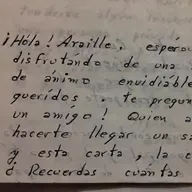 ¡Hóla! Araille, espéro
disfrutándo de una
de ánimo envidiáble
queridos, te pregu
un amigo! Quien a
hacerte llegar un sa
y esta carta, la c
¿ Recuerdas cuántas